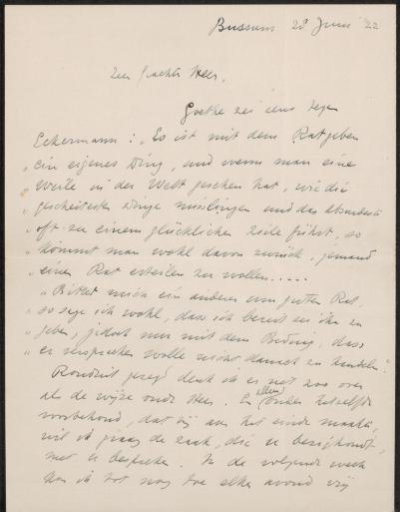 Bussum 28 Juni '22
Zeer Geachte Heer,
Goethe zei eens tegen
Eckermann: „Es ist mit dem Ratgeben
„ein eigenes Ding, und wenn man eine
„Weile in der Welt gesehen hat, wie die
„gescheitesten Dinge misslingen und das Absurdeste
„oft zu einem glücklichen Ziele führt, so
„kommt man wohl davon zurück, jemand
„einen Rat erteilen zu wollen.....
„Bittet mich ein anderer um guten Rat,
„so sage ich wohl, dass ich bereit sei ihn zu
„geben, jedoch nur mit dem Beding, dass
„er versprechen wolle nicht danach zu handeln."
Ronduit gezegd denk ik er net zoo over
als de wijze oude Heer. En alleen onder hetzelfde
voorbehoud, dat hij aan het einde maakt,
wil ik graag de zaak, die U bezighoudt,
met U bespreken. In de volgende week
kan ik tot nog toe elken avond vrij